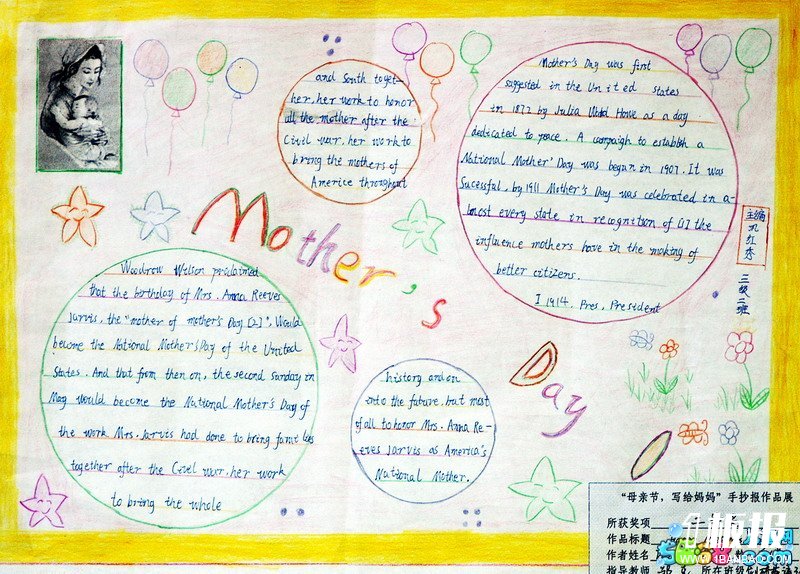 Mother's Day
Mother's Day was first
suggested in the United states
in 1872 by Julia Howe as a day
dedicated to peace. A compaign to establish a
National Mother' Day was begun in 1907. It was
Sucessful, by 1911 Mother's Day was celebrated in a-
lmost every state in recognition of [1] the
influence mothers have in the making of
better citizens.
I 1914. Pres. President
Woodrow Welson proclaimed
that the birthday of Mrs. Anna Reeves
Jarvis, the "mother of mother's Day [2]", Would
become the National Mother'sDay of the United
States. And that from then on, the second sunday in
May would become the National Mother's Day of
the work Mrs. Jarvis had done to bring
together after the war. her work
to bring the whole
and South toget-
her. her work to honor
all the mother after the
Civil war. her work to
bring the mothers of
Americe throughout
history and on
into the future. but most
of all to honor Mrs. Anna Re-
eves Jarvis as America's
National Mother.
主编
巩红杰
三级二班
“母亲节，写给妈妈”手抄报作品展
所获奖项
作品标题
作者姓名
指导教师
所在班级
板报网
WWW.1BANBAO.COM